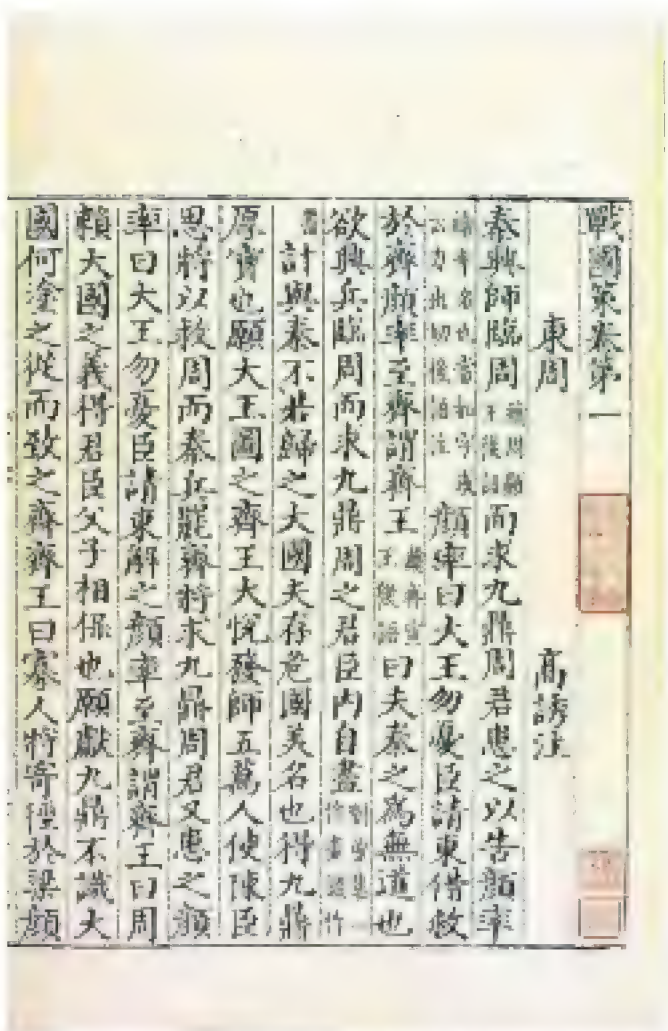 戰國策卷第一
東周 高誘注
秦興師臨周而求九鼎周君患之以告顔率
顔率曰大王勿憂臣請東借救
於齊顔率至齊謂齊王曰夫秦之爲無道也
欲興兵臨周而求九鼎周之君臣内自畫
計與秦不若歸之大國夫存危國美名也得九鼎
厚寶也願大王圖之齊王大悅發師五萬人使陳臣
思將以救周而秦兵罷齊將求九鼎周君又患之顔
率曰大王勿憂臣請東解之顔率至齊謂齊王曰周
賴大國之義得君臣父子相保也願獻九鼎不識大
國何塗之從而致之齊齊王曰寡人將寄徑於梁顔